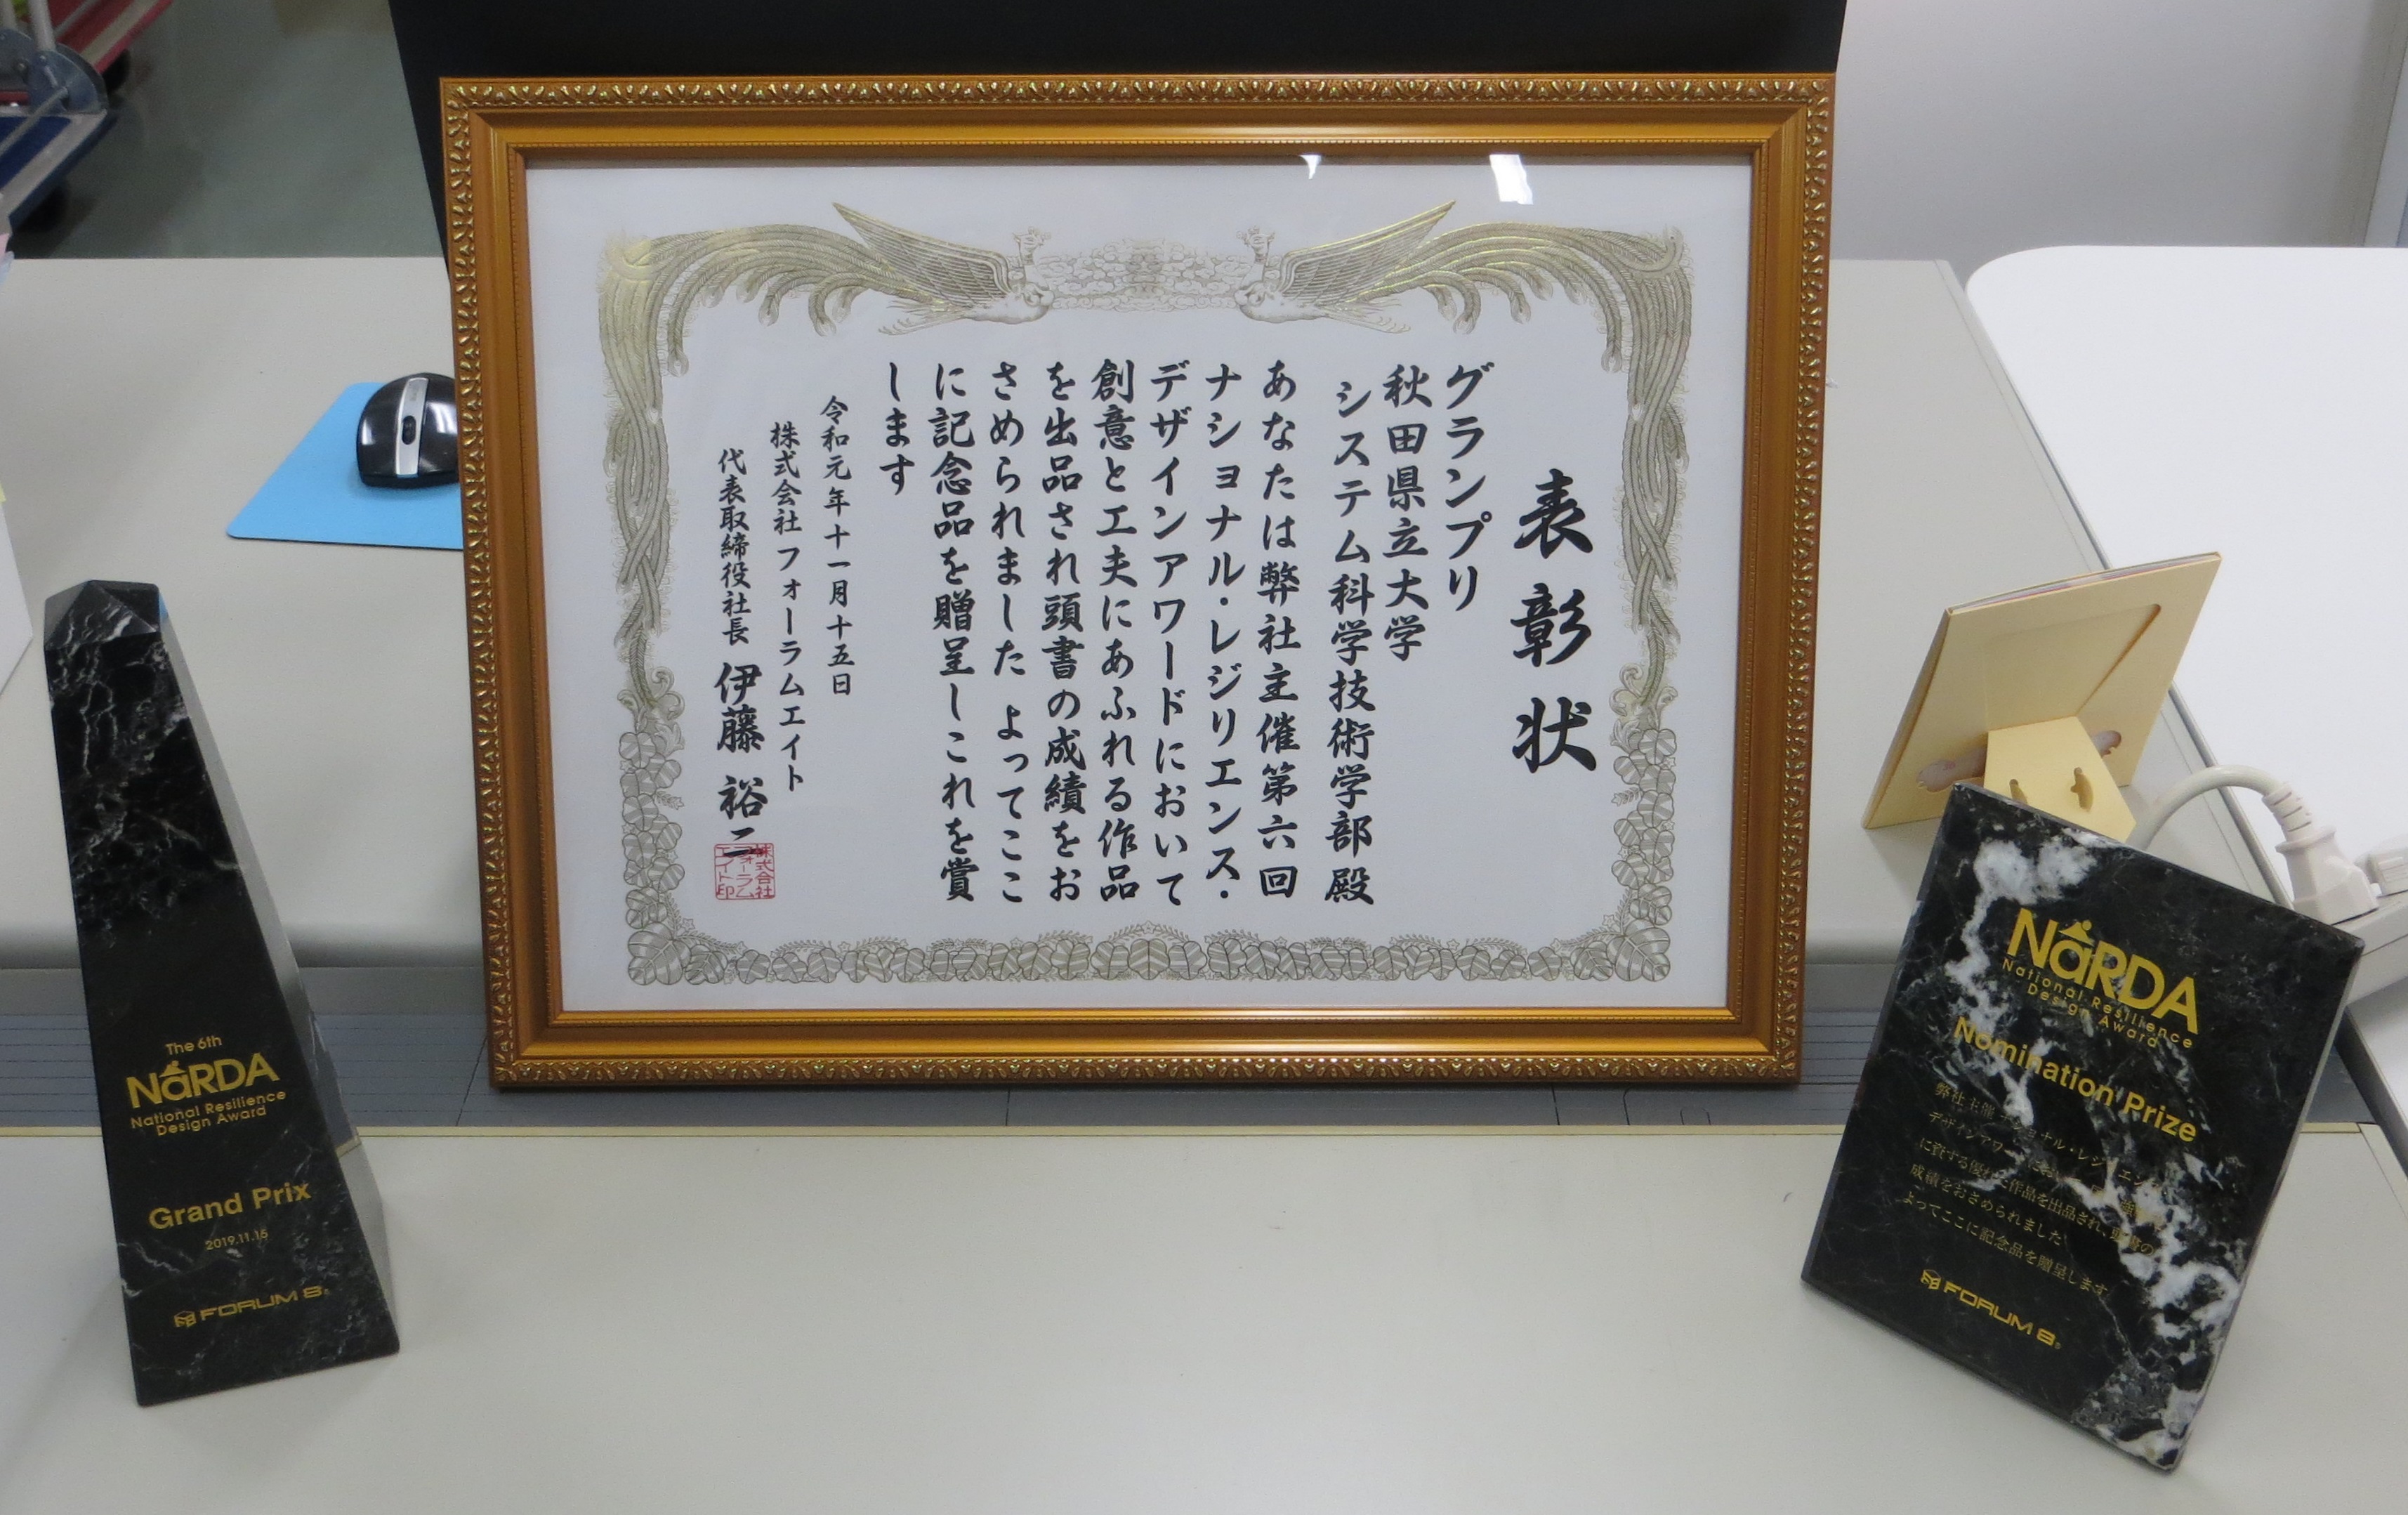 表彰状
グランプリ
秋田県立大学
システム科学技術学部殿
あなたは弊社主催第六回
ナショナル・レジリエンス・
デザインアワードにおいて
創意と工夫にあふれる作品
を出品され頭書の成績をお
さめられました よってここ
に記念品を贈呈しこれを賞
します
令和元年十一月十五日
株式会社フォーラムエイト
代表取締役社長 伊藤 裕二
株式会社
フォーラム
エイト印
The 6th
NaRDA
National Resilience
Design Award
Grand Prix
2019.11.15
FORUM 8
NaRDA
National Resilience
Design Award
Nomination Prize
弊社主催 ショナル・レジリエンス
デザインアワードにおいて
に資する優れた作品を出品され、頭書の
成績をおさめられました
よってここに記念品を贈呈します
FORUM 8